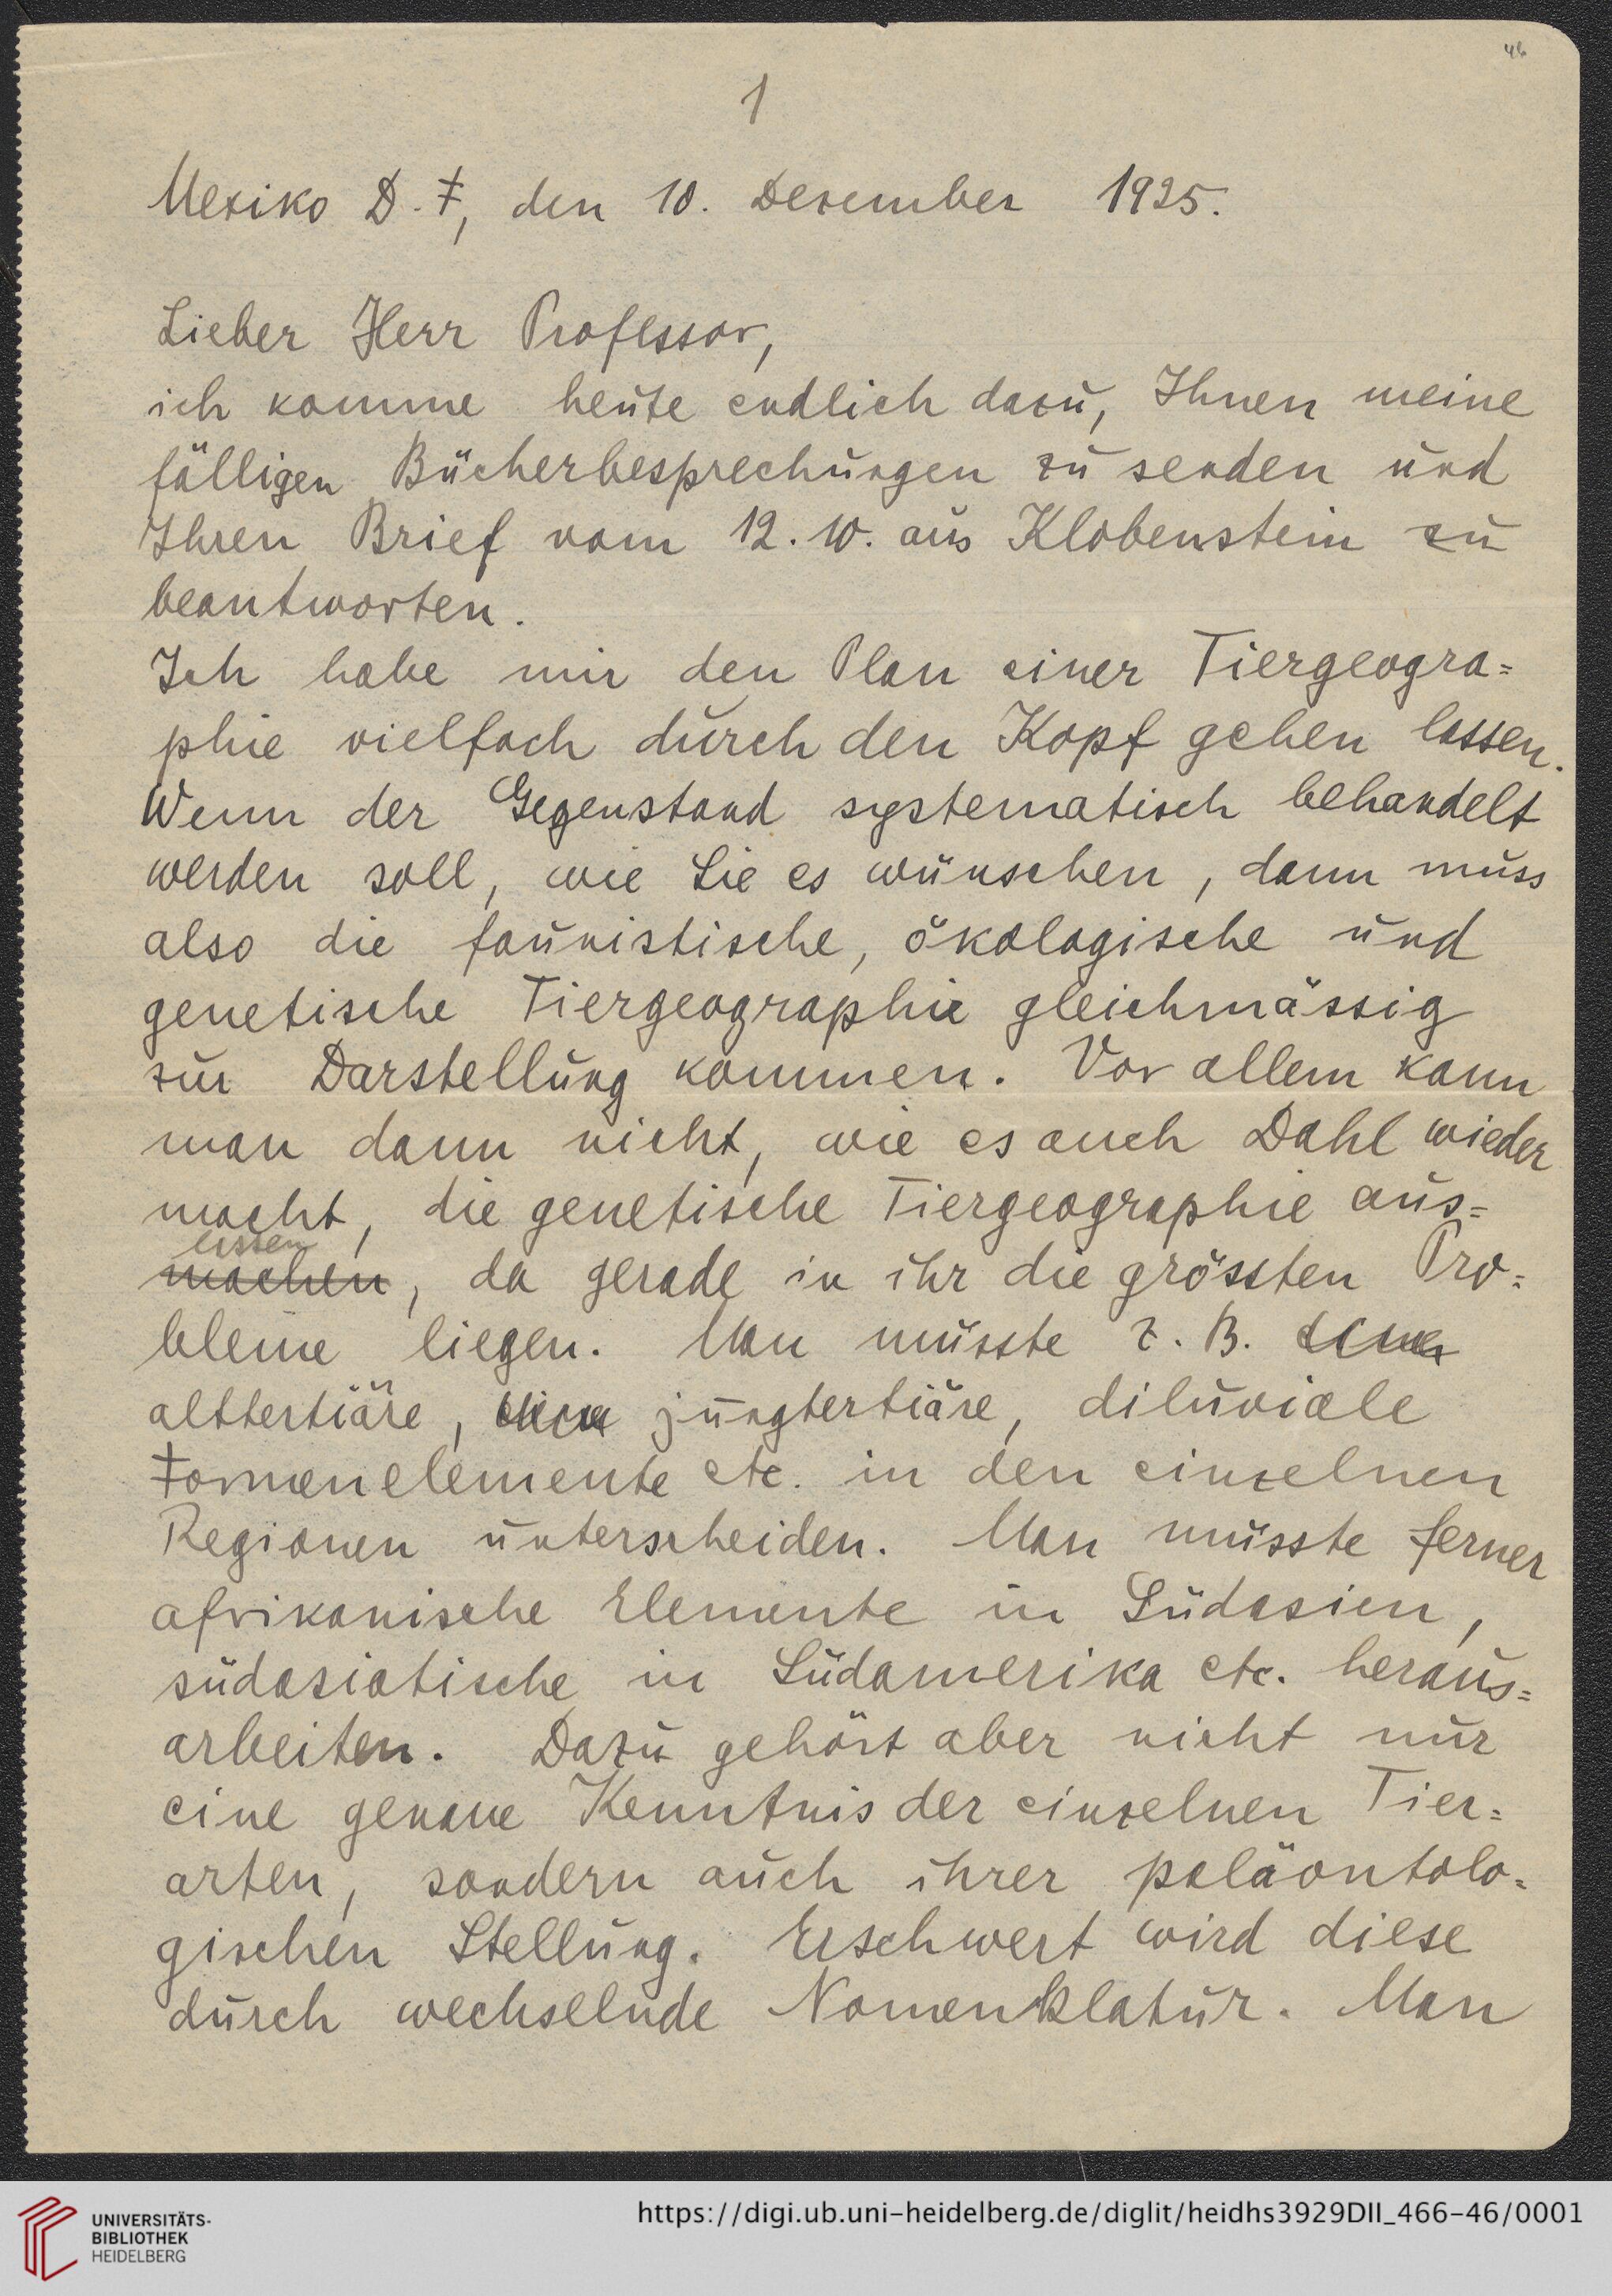 46
1
Mexiko D. F., den 10. Dezember 1925.
Lieber Herr Professor,
ich komme heute endlich dazu, Ihnen meine
fälligen Bücherbesprechungen zu senden und
Ihren Brief vom 12. 10. aus Klobenstein zu
beantworten.
Ich habe mir den Plan einer Tiergeogra=
phie vielfach durch den Kopf gehen lassen.
Wenn der Gegenstand systematisch behandelt
werden soll, wie Sie es wünschen, dann muss
also die faunistische, ökologische und
genetische Tiergeographie gleichmässig
zur Darstellung kommen. Vor allem kann
man dann nicht, wie es auch Dahl wieder
macht, die genetische Tiergeographie aus=
lassen
machen, da gerade in ihr die grössten Pro=
bleme liegen. Man müsste z. B.
alttertiäre, jungtertiäre, diluviale
Formenelemente etc. in den einzelnen
Regionen unterscheiden. Man müsste ferner
afrikanische Elemente in Südasien,
südasiatische in Südamerika etc. heraus=
arbeiten. Dazu gehört aber nicht nur
eine genaue Kenntnis der einzelnen Tier=
arten, sondern auch ihrer paläontolo=
gischen Stellung. Erschwert wird diese
durch wechselnde Nomenklatur. Man
UNIVERSITÄTS-
BIBLIOTHEK
HEIDELBERG
https://digi.ub.uni-heidelberg.de/diglit/heidhs3929DII_466-46/0001